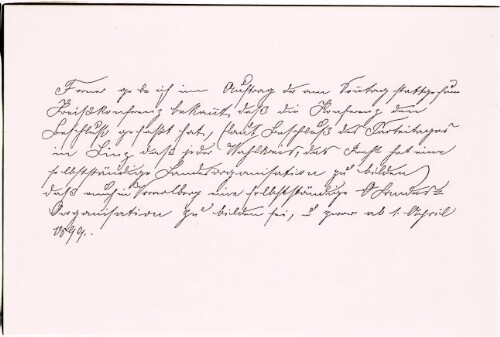 Ferner gebe ich im Auftrag der am Sonntag stattgefun
Kreiskonferenz bekannt, daß die Konferenz den
Beschluß gefaßt hat, (laut Beschluß des Parteitages
in Linz daß jeder Wahlkreis, das Recht hat eine
selbstständige Landesorganisation zu bilden)
daß auch in Vorarlberg eine selbstständige Landes=
Organisation zu bilden sei, u zwar ab 1. April
1899.